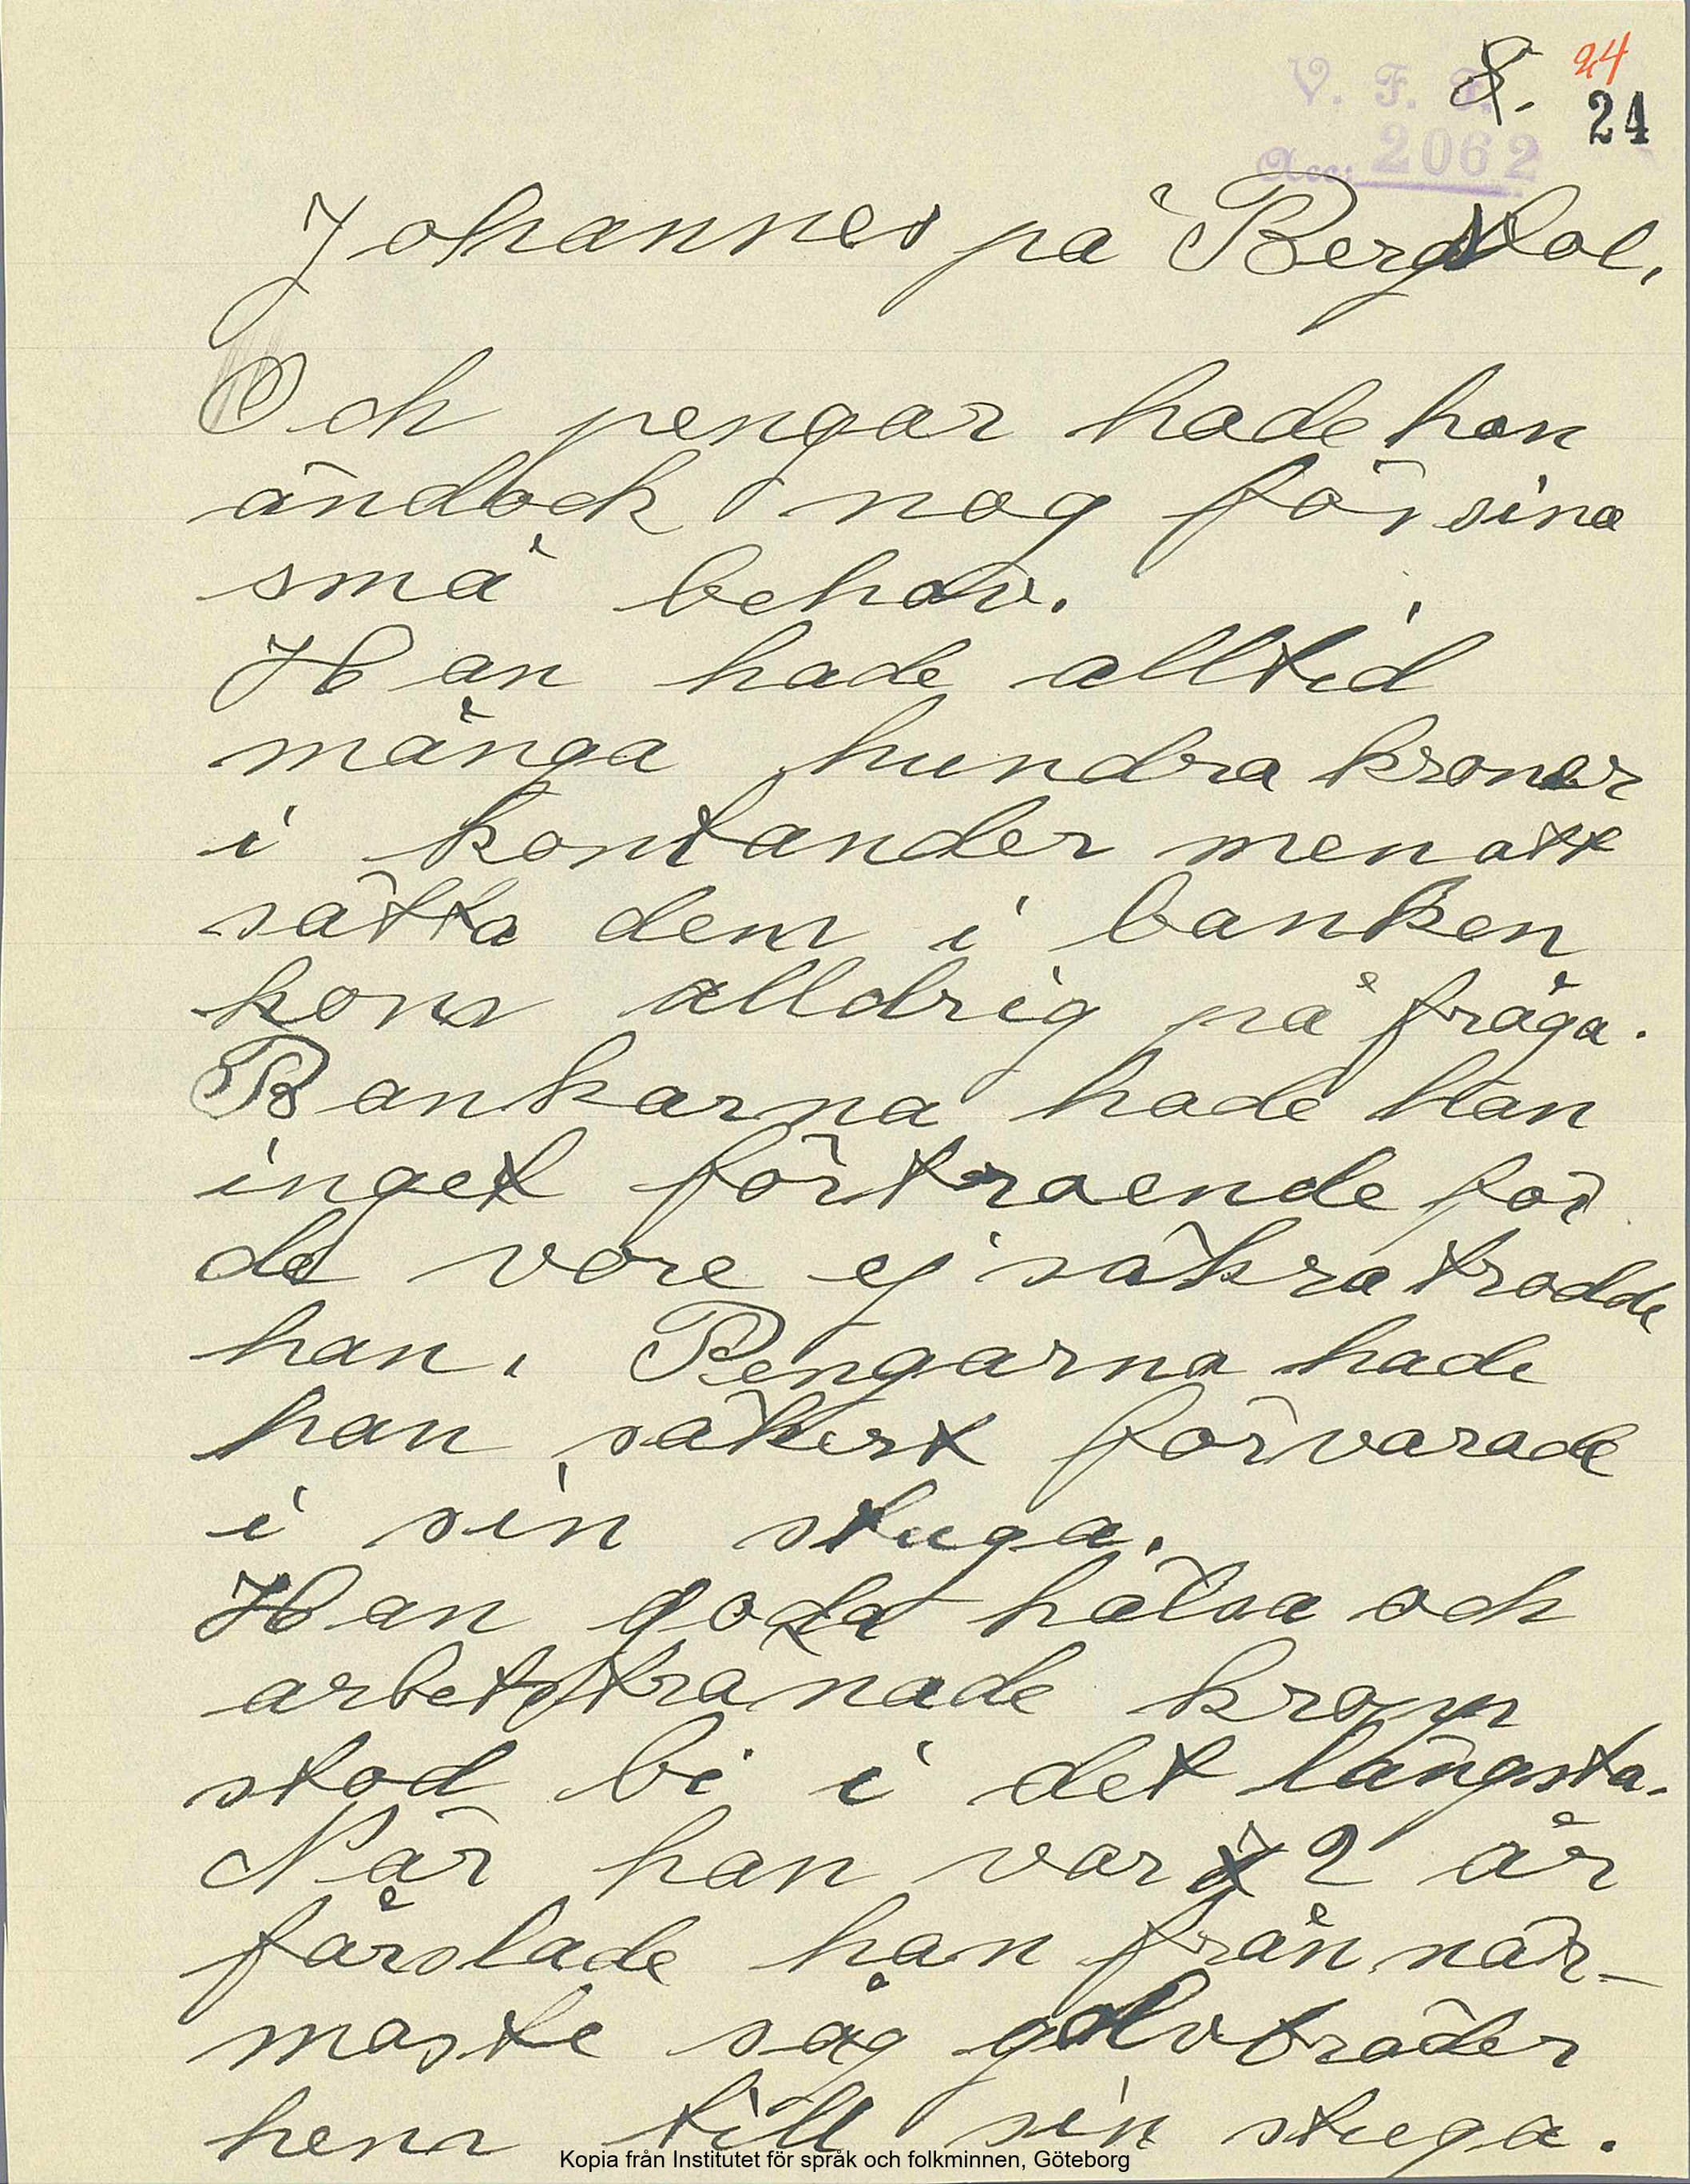 8. 24
V. F. F. 24
Acc: 2062
Johannes på Bergstol.
Och pengar hade han
ändock nog för sina
små behov.
Han hade alltid
många hundra kronor
i kontander men att
sätta dem i banken
kom alldrig på fråga.
Bankarna hade han
inget förtroende för
de vore ej säkra trodde
han. Pengarna hade
han säkert förvarade
i sin stuga.
Han goda hälsa och
arbetstränade kropp
stod bi i det längsta.
När han var 2 år
färslade han från när-
maste såg golvbräder
hem till sin stuga.
Kopia från Institutet för språk och folkminnen, Göteborg